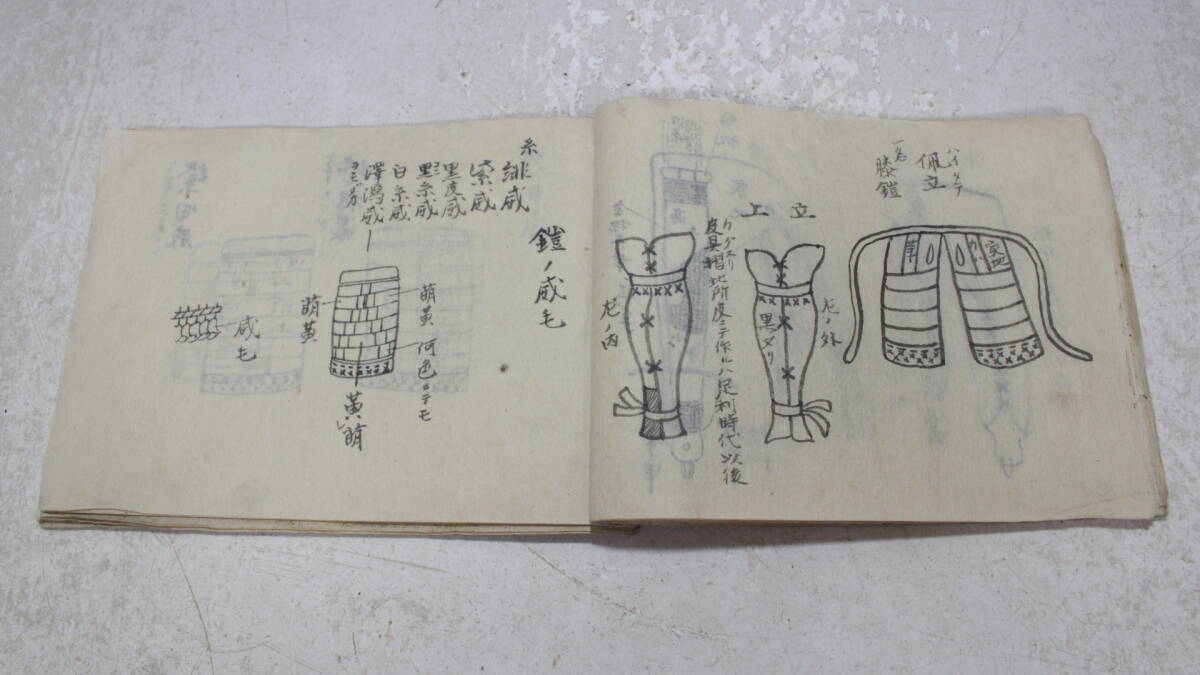 ハイタテ
佩立
一名
膝鎧
家地
立
上
左ノ外
黒ヌリ
皮具摺此所皮ニテ作ルハ足利時代以後
左ノ内
鎧ノ威毛
糸
緋威
紫威
黒皮威
黒糸威
白糸威
澤瀉威
萌黄
何色ニテモ
黄萌
萌黄
威毛